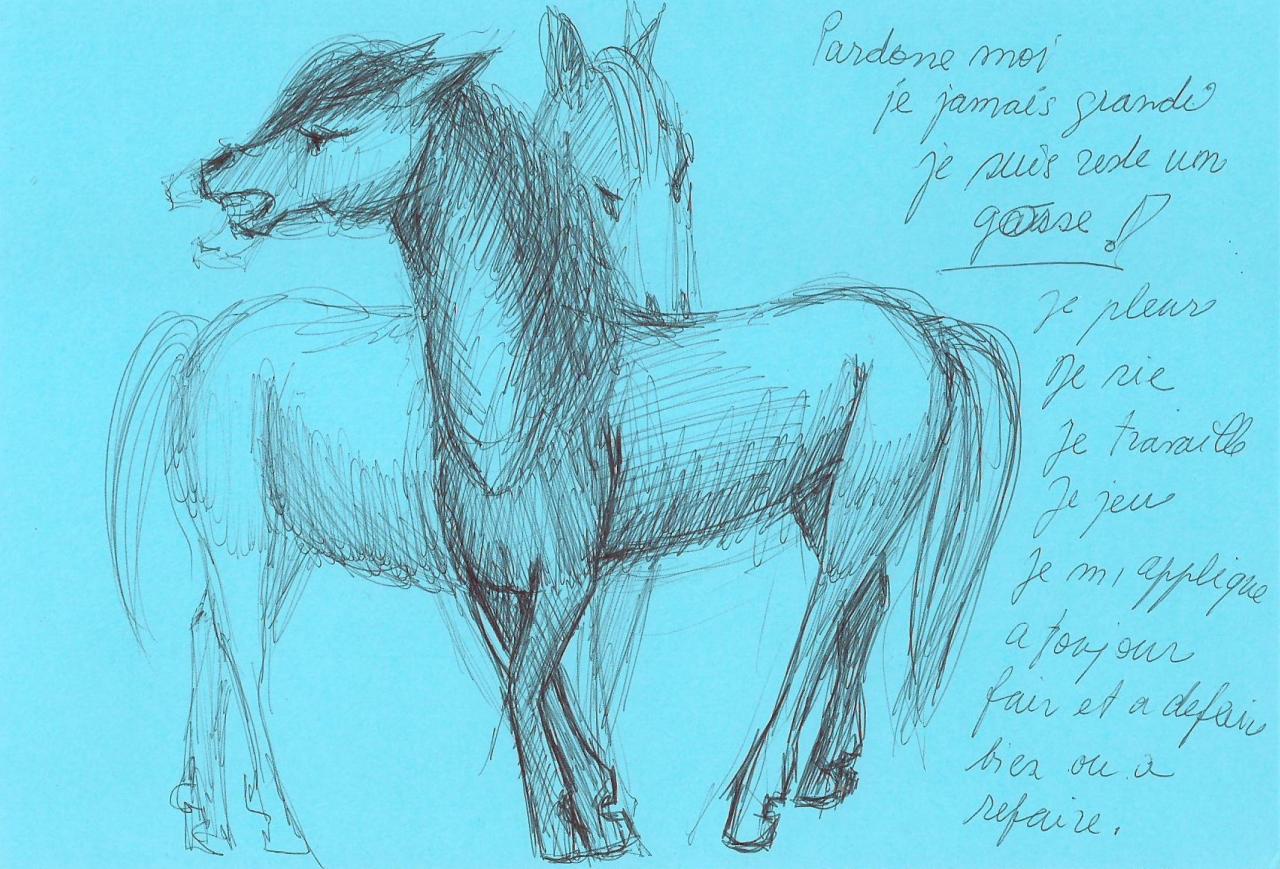 Pardone moi
je jamais grande
je suis reste um
gosse !
je pleur
Je rie
Je travaille
Je jeu
Je m, applique
a toujour
fair et a defair
bien ou a
refaire.